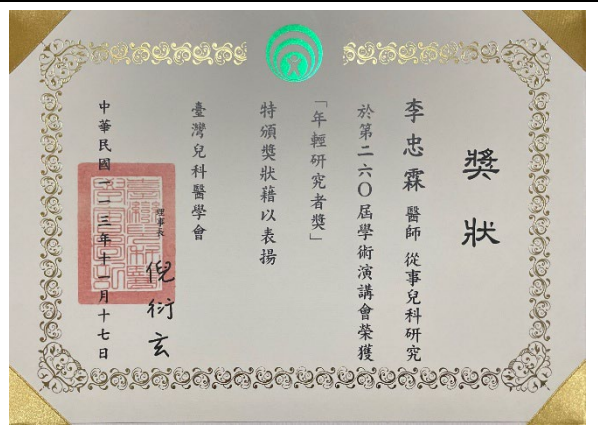 獎狀
李忠霖 醫師 從事兒科研究
於第二六〇屆學術演講會榮獲
「年輕研究者獎」
特頒獎狀藉以表揚
臺灣兒科醫學會
理事長 倪衍玄
中華民國一一三年十一月十七日